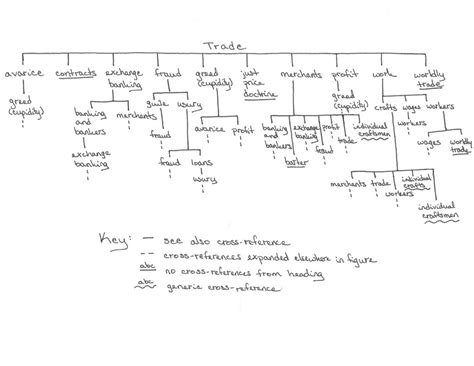 Trade
avarice contracts exchange fraud greed just merchants profit work worldly
banking (cupidity) price trade
doctrine
greed
(cupidity)
banking merchants
and
bankers
exchange
banking
guile usury
fraud
fraud loans
usury
avarice profit
banking exchange profit individual
and banking trade craftsmen
bankers fraud
barter
greed
(cupidity)
crafts wages workers
workers
wages worldly
trade
merchants trade individual
crafts
workers
individual
craftsmen
Key: — see also cross-reference
-- cross-references expanded elsewhere in figure
abc no cross-references from heading
abc generic cross-reference